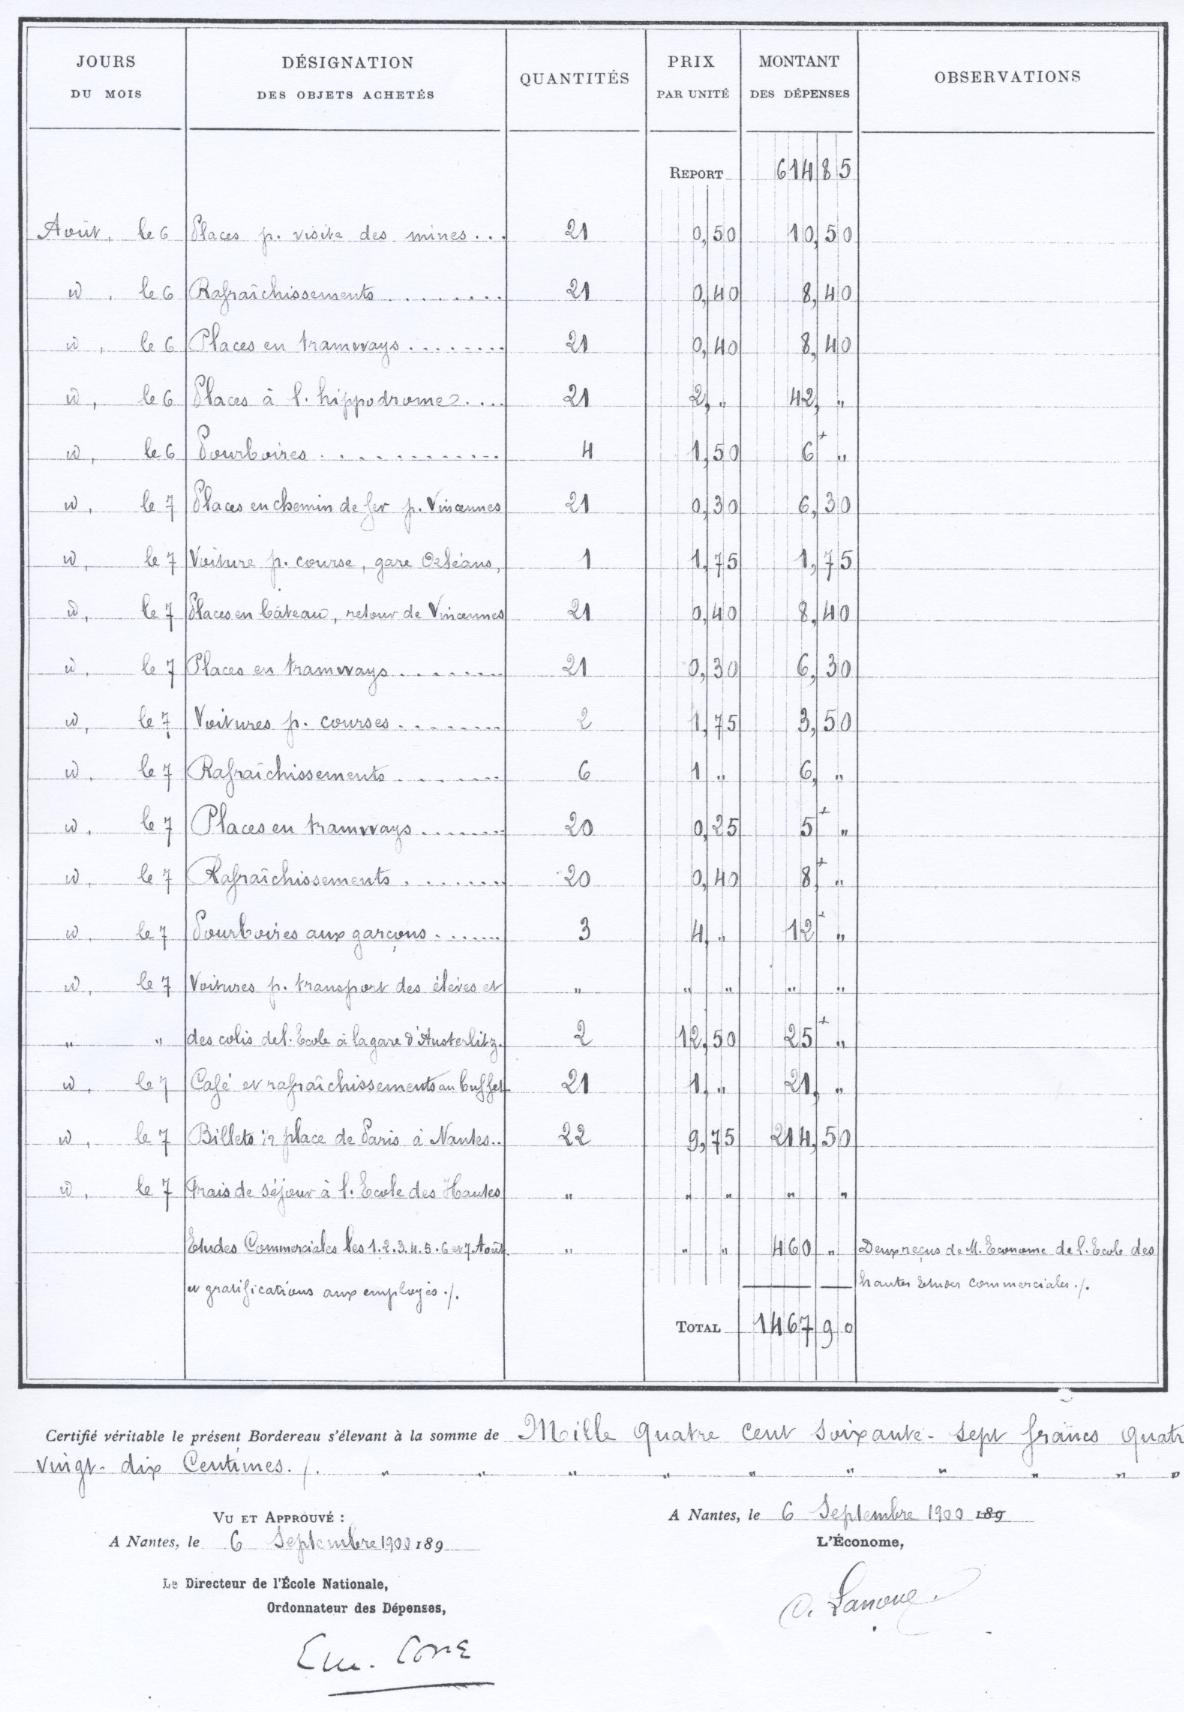 JOURS DU MOIS DÉSIGNATION DES OBJETS ACHETÉS QUANTITÉS PRIX PAR UNITÉ MONTANT DES DÉPENSES OBSERVATIONS
REPORT 614 85
Août, le 6 Places p. visite des mines... 21 0,50 10,50
id, le 6 Rafraîchissements ......... 21 0,40 8,40
id, le 6 Places en tramways ........ 21 0,40 8,40
id, le 6 Places à l'hippodrome .... 21 2, " 42, "
id, le 6 Pourboires ............ 4 1,50 6 "
id, le 7 Places en chemin de fer p. Vincennes 21 0,30 6,30
id, le 7 Voiture p. course, gare Orléans, 1 1,75 1,75
id, le 7 Places en bâteau, retour de Vincennes 21 0,40 8,40
id, le 7 Places en tramways ........ 21 0,30 6,30
id, le 7 Voitures p. courses ........ 2 1,75 3,50
id, le 7 Rafraîchissements ........ 6 1 " 6, "
id, le 7 Places en tramways ....... 20 0,25 5 "
id, le 7 Rafraîchissements ........ 20 0,40 8 "
id, le 7 Pourboires aux garçons ....... 3 4, " 12 "
id, le 7 Voitures p. transport des élèves et " " " " "
" " des colis de l'Ecole à la gare d'Austerlitz. 2 12,50 25 "
id, le 7 Café et rafraîchissements au buffet 21 1, " 21, "
id, le 7 Billets ½ place de Paris à Nantes.. 22 9,75 214,50
id, le 7 Frais de séjour à l'Ecole des Hautes " " " " "
Etudes Commerciales les 1.2.3.4.5.6 et 7 Août " " " 460 " Deux reçus de M. Econome de l'Ecole des
et gratifications aux employés ./. hautes Etudes commerciales ./.
TOTAL 1467 90
Certifié véritable le présent Bordereau s'élevant à la somme de Mille quatre cent soixante-sept francs quatr
vingt-dix Centimes ./. " " " " " " " " " " "
VU ET APPROUVÉ :
A Nantes, le 6 Septembre 1900 189
A Nantes, le 6 Septembre 1900 189
L'Économe,
Le Directeur de l'École Nationale,
Ordonnateur des Dépenses,